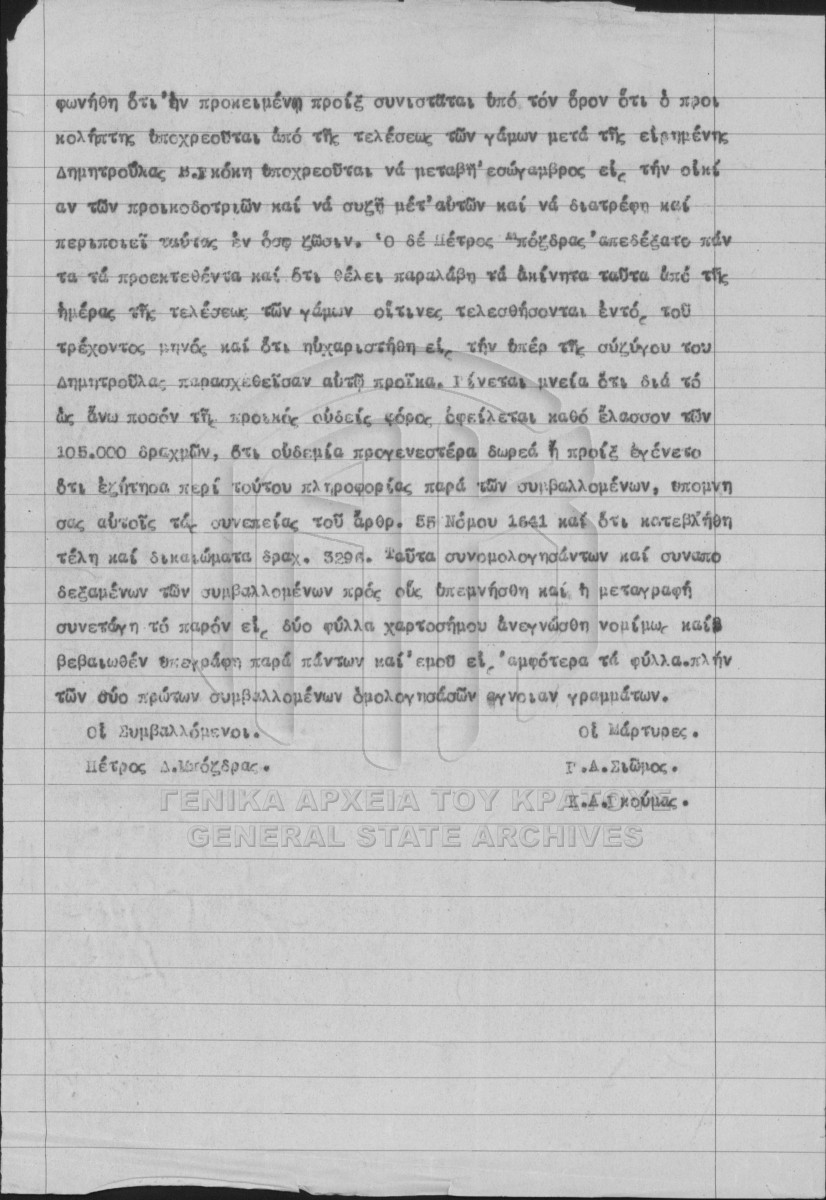 φωνήθη ὅτι ἡν προκειμένη προίξ συνισταται ὑπό τόν ὅρον ὅτι ὁ προι
κολήπτης ὑποχρεοῦται ἀπό τῆς τελέσεως τῶν γάμων μετά τῆς εἰρημένης
Δημητροῦλας Β.Γκόκη ὑποχρεοῦται νά μεταβῆ ἐσώγαμβρος εἰς τήν οἰκί
αν τῶν προικοδοτριῶν καί νά συζῆ μέτ'αὐτῶν καί νά διατρέφη καί
περιποιεῖ ταύτας ἐν ὅσω ζῶσιν. Ὁ δέ Πέτρος Μπόζδρας ἀπεδέξατο πάν
τα τά προεκτεθέντα καί ὅτι θέλει παραλάβη τά ἀκίνητα ταῦτα ἀπό τῆς
ἡμέρας τῆς τελέσεως τῶν γάμων οἵτινες τελεσθήσονται ἐντός τοῦ
τρέχοντος μηνός καί ὅτι ηὐχαριστήθη εἰς τήν ὑπέρ τῆς σύζύγου του
Δημητροῦλας παρασχεθεῖσαν αὐτῷ προῖκα. Γίνεται μνεία ὅτι διά τό
ὡς ἄνω ποσόν τῆς προικός οὐδείς φόρος ὀφείλεται καθό ἔλασσον τῶν
105.000 δραχμῶν, ὅτι οὐδεμία προγενεστέρα δωρεά ἤ προίξ ἐγένετο
ὅτι ἐζήτησα περί τούτου πληροφορίας παρά τῶν συμβαλλομένων, ὑπομνη
σας αὐτοῖς τάς συνεπείας τοῦ ἄρθρ. 55 Νόμου 1641 καί ὅτι κατεβλήθη
τέλη καί δικαιώματα δραχ. 3296. Ταῦτα συνομολογησάντων καί συναπο
δεξαμένων τῶν συμβαλλομένων πρός οὕς ὑπεμνήσθη καί ἡ μεταγραφή
συνετάγη τό παρόν εἰς δύο φύλλα χαρτοσήμου ἀνεγνώσθη νομίμως καί
βεβαιωθέν ὑπεγράφη παρά πάντων καί ἐμοῦ εἰς ἀμφότερα τά φύλλα.πλήν
τῶν δύο πρώτων συμβαλλομένων ὁμολογησάσῶν ἀγνοιαν γραμμάτων.
Οἱ Συμβαλλόμενοι. Οἱ Μάρτυρες.
Πέτρος Δ.Μπόζδρας. Γ.Α.Σιῶμος.
Κ.Α.Γκούμας.
ΓΕΝΙΚΑ ΑΡΧΕΙΑ ΤΟΥ ΚΡΑΤΟΥΣ
GENERAL STATE ARCHIVES